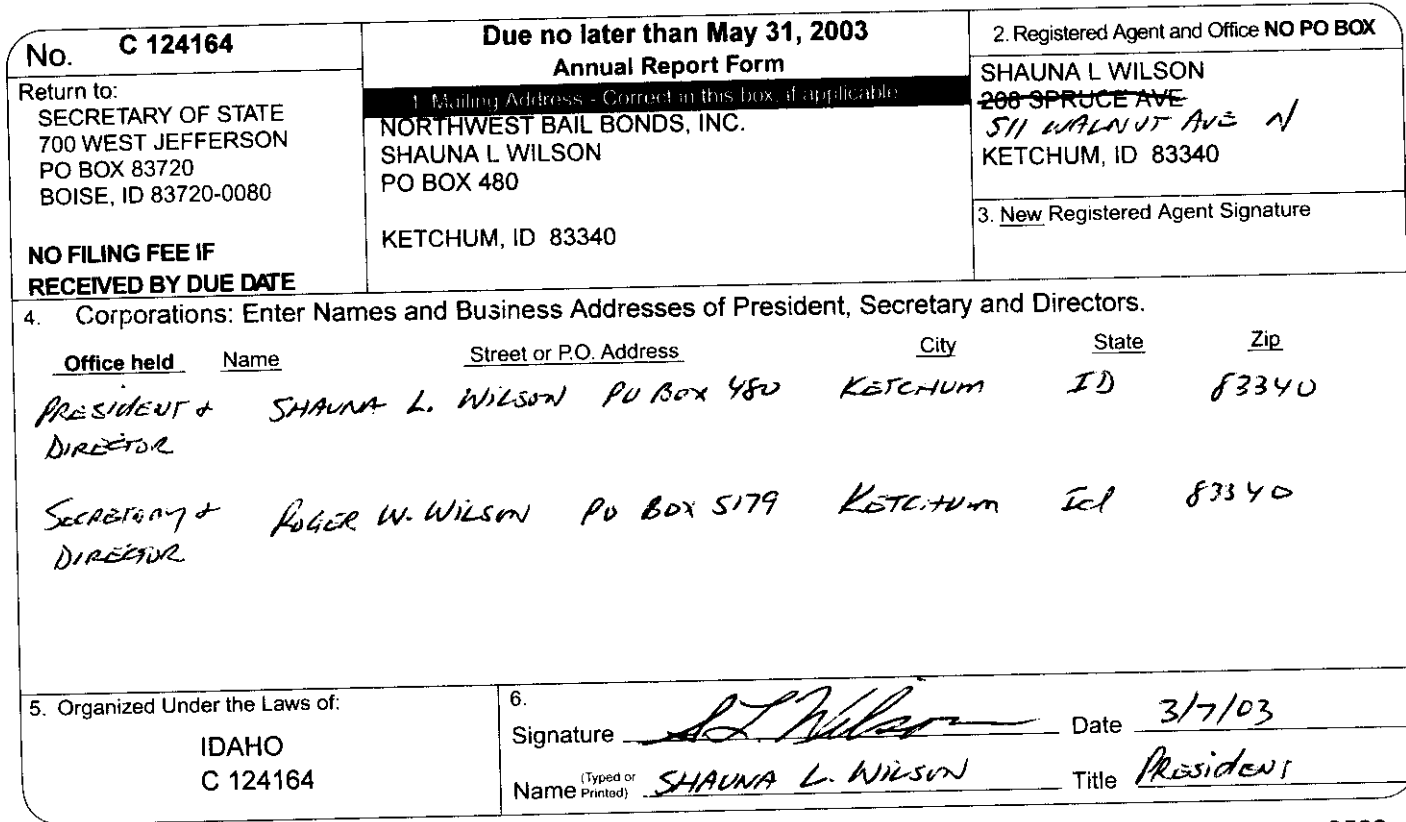 No. C 124164
Return to:
SECRETARY OF STATE
700 WEST JEFFERSON
PO BOX 83720
BOISE, ID 83720-0080
NO FILING FEE IF
RECEIVED BY DUE DATE
Due no later than May 31, 2003
Annual Report Form
1. Mailing Address - Correct in this box, if applicable
NORTHWEST BAIL BONDS, INC.
SHAUNA L WILSON
PO BOX 480
KETCHUM, ID 83340
2. Registered Agent and Office NO PO BOX
SHAUNA L WILSON
208 SPRUCE AVE
511 WALNUT AVE N
KETCHUM, ID 83340
3. New Registered Agent Signature
4. Corporations: Enter Names and Business Addresses of President, Secretary and Directors.
Office held Name Street or P.O. Address City State Zip
PRESIDENT + SHAUNA L. WILSON PO BOX 480 KETCHUM ID 83340
DIRECTOR
SECRETARY + ROGER W. WILSON PO BOX 5179 KETCHUM Id 83340
DIRECTOR
5. Organized Under the Laws of:
IDAHO
C 124164
6.
Signature SL Wilson Date 3/7/03
Name (Typed or Printed) SHAUNA L. WILSON Title PRESIDENT